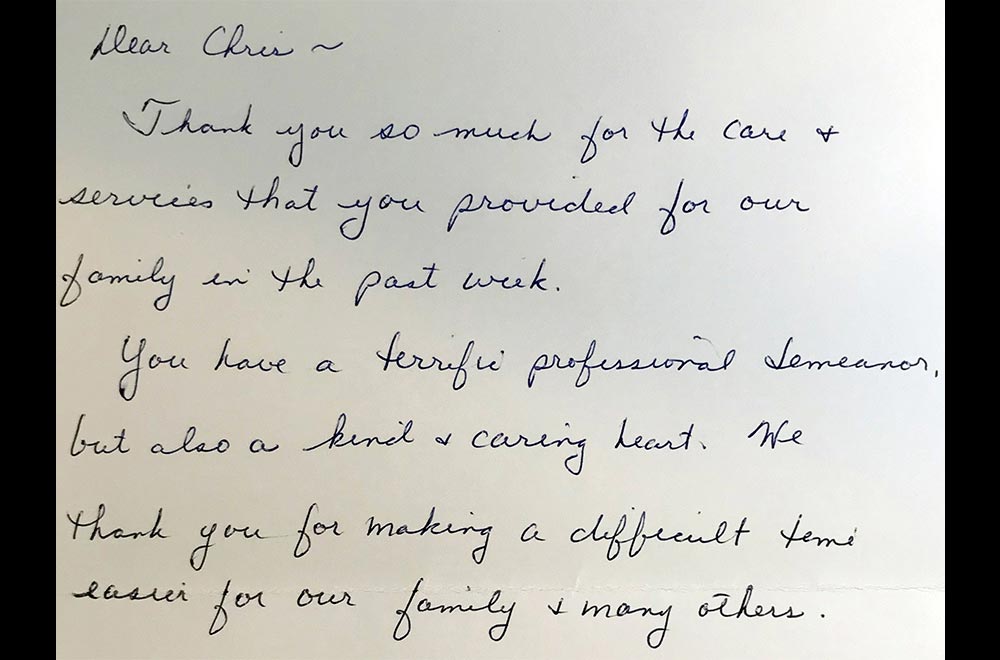 Dear Chris ~
Thank you so much for the care &
services that you provided for our
family in the past week.
You have a terrific professional demeanor,
but also a kind & caring heart. We
thank you for making a difficult time
easier for our family & many others.